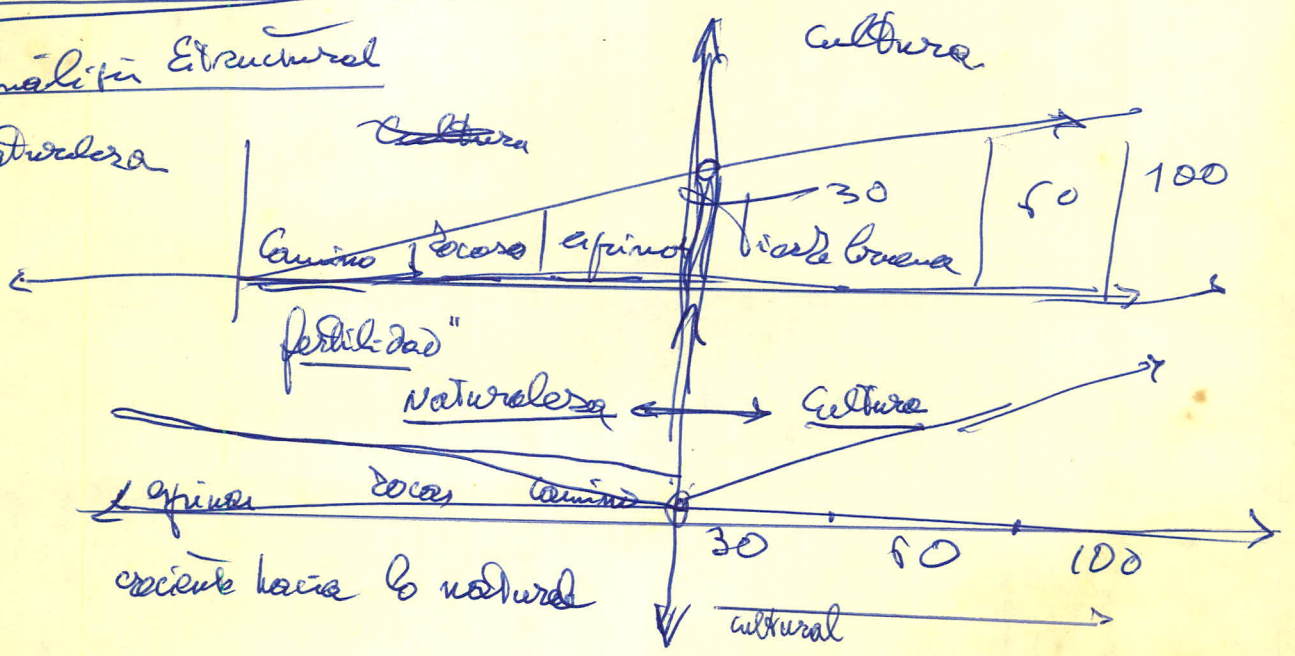 Cultura
nálisis Estructural
aturaleza Cultura
30 60 100
Camino rocoso espinos tierra buena
fertilidad"
Naturaleza Cultura
espinos rocas camino
30 60 100
creciente hacia lo natural
cultural